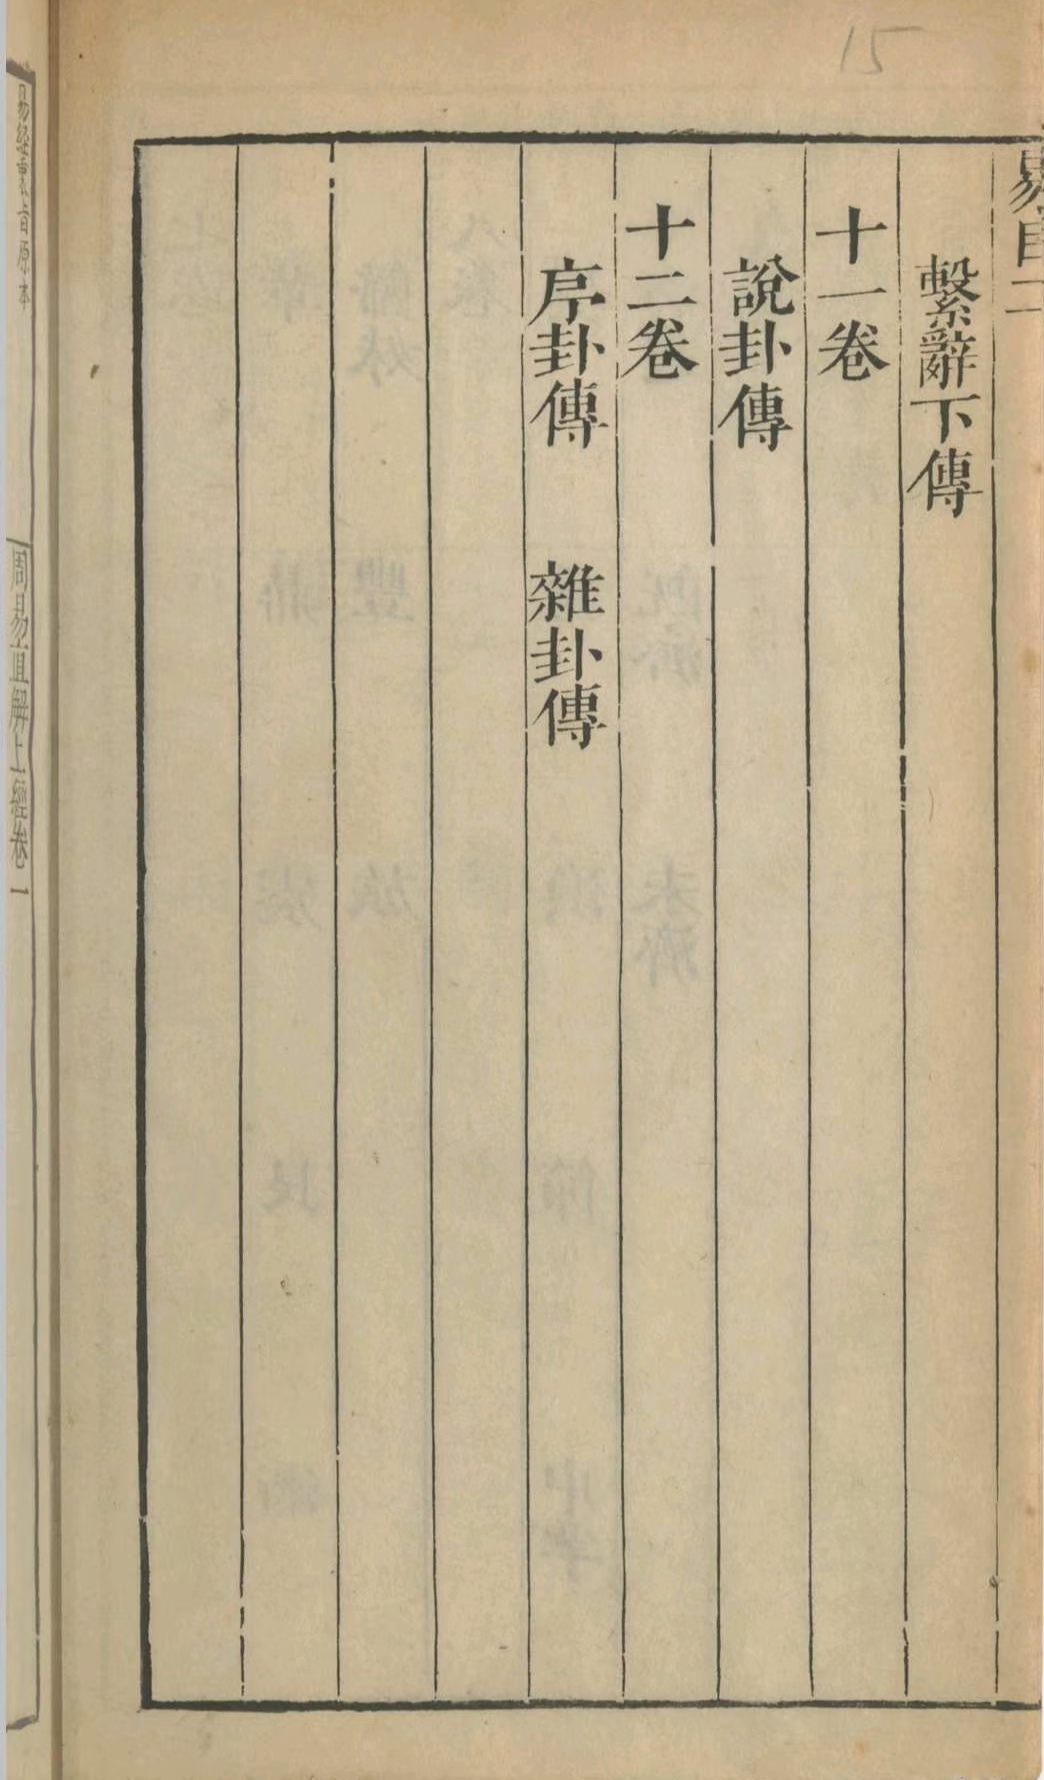 15
繫辭下傳
十一卷
說卦傳
十二卷
序卦傳　雜卦傳
易經衷旨原本
周易直解上經卷一